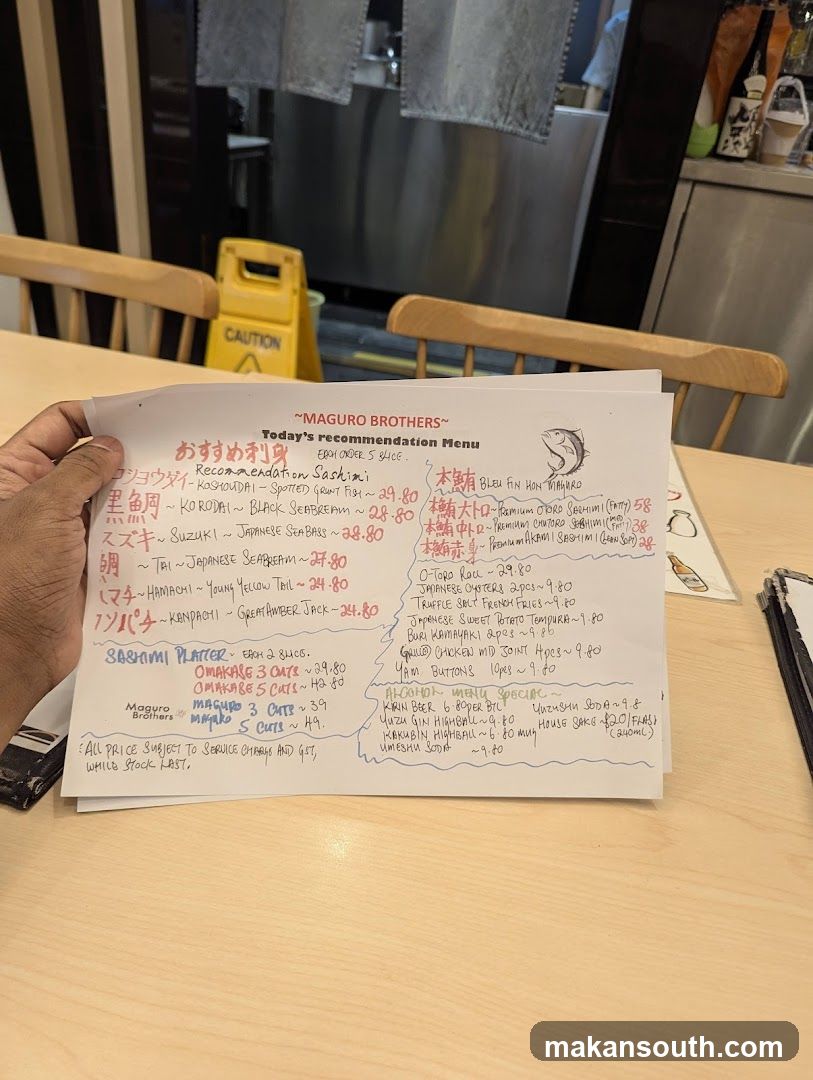 CAUTION
~MAGURO BROTHERS~
Today's recommendation Menu
おすすめ刺身 EACH ORDER 5 SLICE.
Recommendation Sashimi
コショウダイ - KOSHOUDAI ~ SPOTTED GRUNT FISH ~ 29.80
黒鯛 ~ KORODAI ~ BLACK SEABREAM ~ 28.80
スズキ ~ SUZUKI ~ JAPANESE SEABASS ~ 28.80
鯛 ~ TAI ~ JAPANESE SEABREAM ~ 27.80
ハマチ ~ HAMACHI ~ YOUNG YELLOW TAIL ~ 24.80
~ KANPACHI ~ GREAT AMBER JACK ~ 24.80
SASHIMI PLATTER ~ EACH 2 SLICE.
OMAKASE 3 CUTS ~ 29.80
OMAKASE 5 CUTS ~ 42.80
MAGURO 3 CUTS ~ 39
MAGURO 5 CUTS ~ 49.
Maguro
Brothers
ALL PRICE SUBJECT TO SERVICE CHARGE AND GST,
WHILE STOCK LAST.
本鮪 BLEU FIN HON MAGURO
本鮪大トロ ~ PREMIUM OTORO SASHIMI (FATTY) 58
本鮪中トロ ~ PREMIUM CHUTORO SASHIMI (MED FATTY) 38
本鮪赤身 ~ PREMIUM AKAMI SASHIMI 28
O-TORO ROLL ~ 29.80
JAPANESE OYSTERS 2pcs ~ 9.80
TRUFFLE SALT FRENCH FRIES ~ 9.80
JAPANESE SWEET POTATO TEMPURA ~ 9.80
BURI KAMAYAKI 2pcs ~ 9.80
GRILLED CHICKEN MID JOINT 4pcs ~ 9.80
YAM BUTTONS 10pcs ~ 9.80
ALCOHOL MENU SPECIAL ~
KIRIN BEER 6.80 PER BTL
YUZU GIN HIGHBALL ~ 9.80
KAKUBIN HIGHBALL ~ 6.80 MUG
UMESHU SODA ~ 9.80
YUZUSHU SODA ~ 9.8
HOUSE SAKE ~ $20/FKAS
(240ML)
makansouth.com